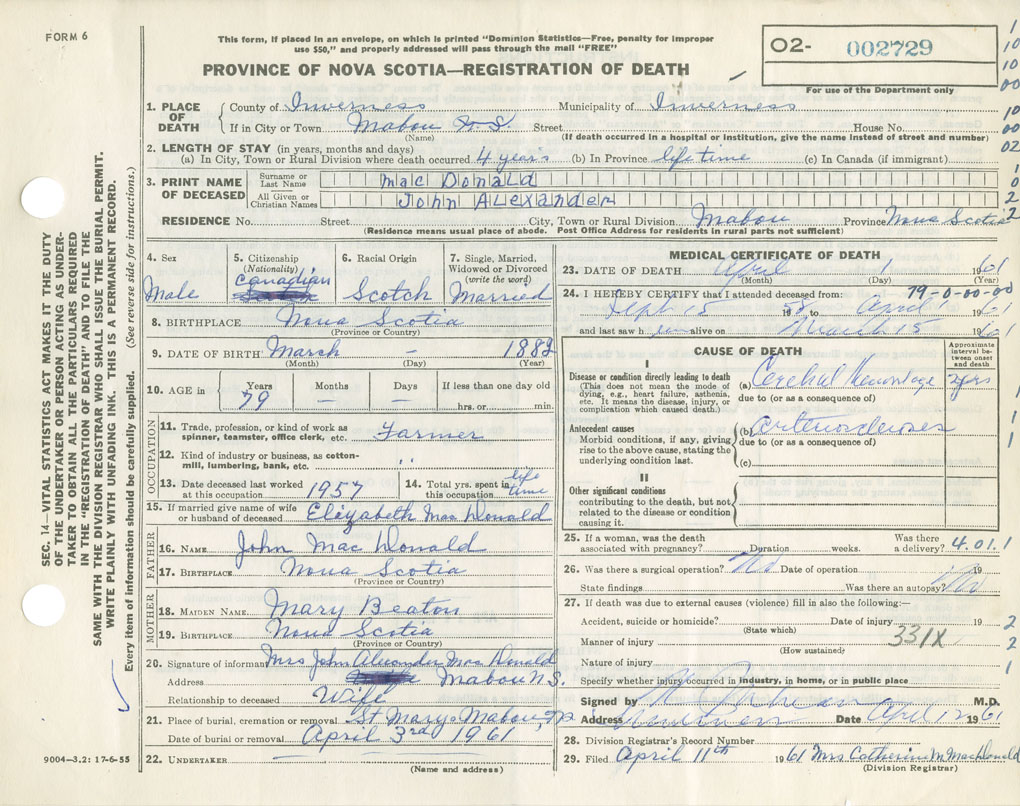 FORM 6
This form, if placed in an envelope, on which is printed "Dominion Statistics—Free, penalty for improper
use $50," and properly addressed will pass through the mail "FREE"
O2- 002729
For use of the Department only
PROVINCE OF NOVA SCOTIA—REGISTRATION OF DEATH
1. PLACE OF DEATH
County of Inverness Municipality of Inverness
If in City or Town Mabou N.S. Street House No.
(Name) (If death occurred in a hospital or institution, give the name instead of street and number)
2. LENGTH OF STAY (in years, months and days)
(a) In City, Town or Rural Division where death occurred 4 year's (b) In Province life time (c) In Canada (if immigrant)
3. PRINT NAME OF DECEASED
Surname or Last Name Mac Donald
All Given or Christian Names John Alexander
RESIDENCE No. Street City, Town or Rural Division Mabou Province Nova Scotia
(Residence means usual place of abode. Post Office Address for residents in rural parts not sufficient)
4. Sex Male
5. Citizenship (Nationality) Canadian
6. Racial Origin Scotch
7. Single, Married, Widowed or Divorced (write the word) Married
8. BIRTHPLACE Nova Scotia
(Province or Country)
9. DATE OF BIRTH March – 1882
(Month) (Day) (Year)
10. AGE in Years 79 Months — Days — If less than one day old hrs. or min.
OCCUPATION
11. Trade, profession, or kind of work as spinner, teamster, office clerk, etc. Farmer
12. Kind of industry or business, as cotton-mill, lumbering, bank, etc. "
13. Date deceased last worked at this occupation 1957
14. Total yrs. spent in this occupation life time
15. If married give name of wife or husband of deceased Elizabeth Mac Donald
FATHER
16. NAME John Mac Donald
17. BIRTHPLACE Nova Scotia
(Province or Country)
MOTHER
18. MAIDEN NAME Mary Beaton
19. BIRTHPLACE Nova Scotia
(Province or Country)
20. Signature of informant Mrs John Alexander Mac Donald
Address Mabou N.S.
Relationship to deceased Wife
21. Place of burial, cremation or removal St Mary's Mabou, N.S.
Date of burial or removal April 3rd 1961
22. UNDERTAKER
(Name and address)
MEDICAL CERTIFICATE OF DEATH
23. DATE OF DEATH April 1 1961
(Month) (Day)
79-0-00-00
24. I HEREBY CERTIFY that I attended deceased from:
Sept 15 19 to April 1 1961
and last saw him alive on March 15 1961
CAUSE OF DEATH
Approximate interval between onset and death
I
Disease or condition directly leading to death
(This does not mean the mode of dying, e.g., heart failure, asthenia, etc. It means the disease, injury, or complication which caused death.)
(a) Cerebral Hemorrhage 2 yrs
due to (or as a consequence of)
Antecedent causes
Morbid conditions, if any, giving rise to the above cause, stating the underlying condition last.
(b) Arteriosclerosis
due to (or as a consequence of)
(c)
II
Other significant conditions
contributing to the death, but not related to the disease or condition causing it.
25. If a woman, was the death associated with pregnancy? Duration weeks. Was there a delivery? 4.01.1
26. Was there a surgical operation? No Date of operation 19
State findings Was there an autopsy? No
27. If death was due to external causes (violence) fill in also the following:—
Accident, suicide or homicide? Date of injury 19
(State which)
Manner of injury 331X
(How sustained)
Nature of injury
Specify whether injury occurred in industry, in home, or in public place
Signed by M.D.
Address Inverness Date April 12 1961
28. Division Registrar's Record Number
29. Filed April 11th 1961 Mrs Catherine M MacDonald
(Division Registrar)
SEC. 14—VITAL STATISTICS ACT MAKES IT THE DUTY
OF THE UNDERTAKER OR PERSON ACTING AS UNDER-
TAKER TO OBTAIN ALL THE PARTICULARS REQUIRED
IN THE "REGISTRATION OF DEATH" AND TO FILE THE
SAME WITH THE DIVISION REGISTRAR WHO SHALL ISSUE THE BURIAL PERMIT.
WRITE PLAINLY WITH UNFADING INK. THIS IS A PERMANENT RECORD.
Every item of information should be carefully supplied. (See reverse side for instructions.)
9004—3.2: 17-6-55